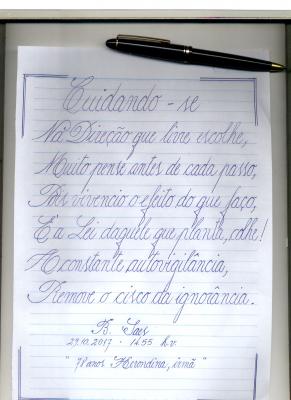 Cuidando-se
Na Direção que livre escolhe,
Muito pense antes de cada passo,
Pois vivencio o efeito do que faço,
É a Lei daquele que planta, colhe!
A constante autovigilância,
Remove o cisco da ignorância.
B. Saes
29.10.2017 - 14:55 h.v.
"78 anos Herondina, irmã"